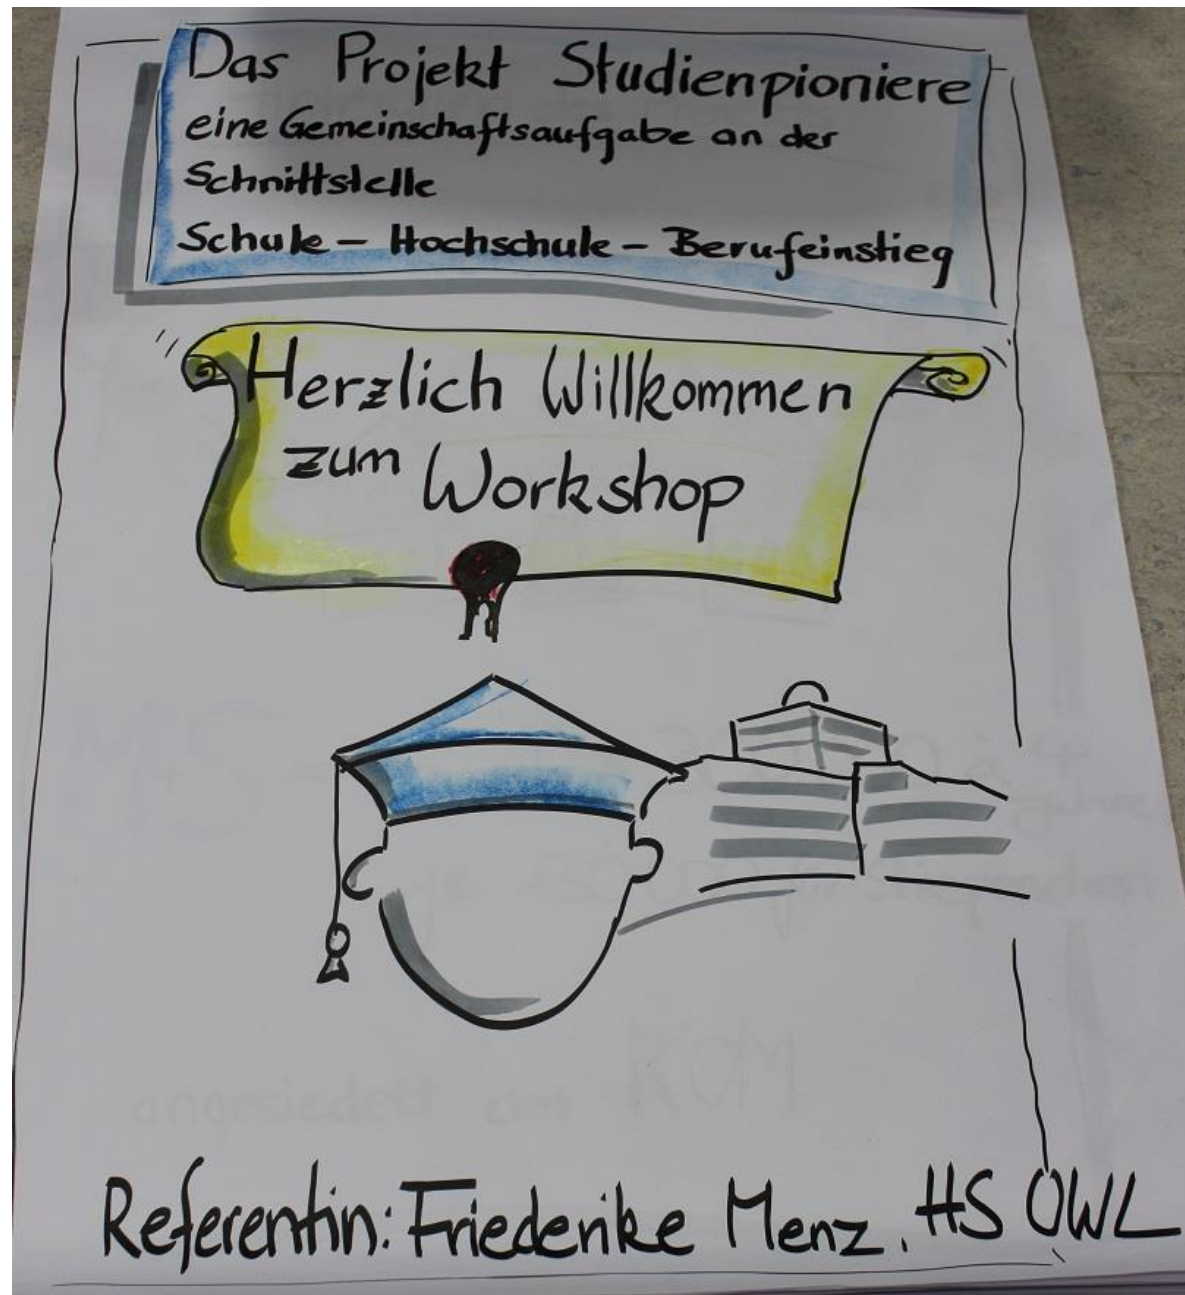 Das Projekt Studienpioniere
eine Gemeinschaftsaufgabe an der
Schnittstelle
Schule – Hochschule – Berufeinstieg
Herzlich Willkommen
zum Workshop
angesiedelt am KOM
Referentin: Friederike Menz, HS OWL